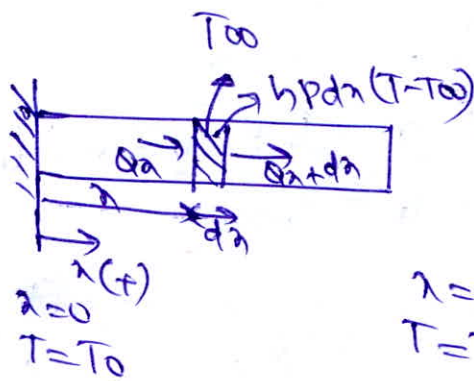 T∞
hPdx(T-T∞)
Qx
Qx+dx
x
dx
x(+)
x=0
T=T0
x=
T=